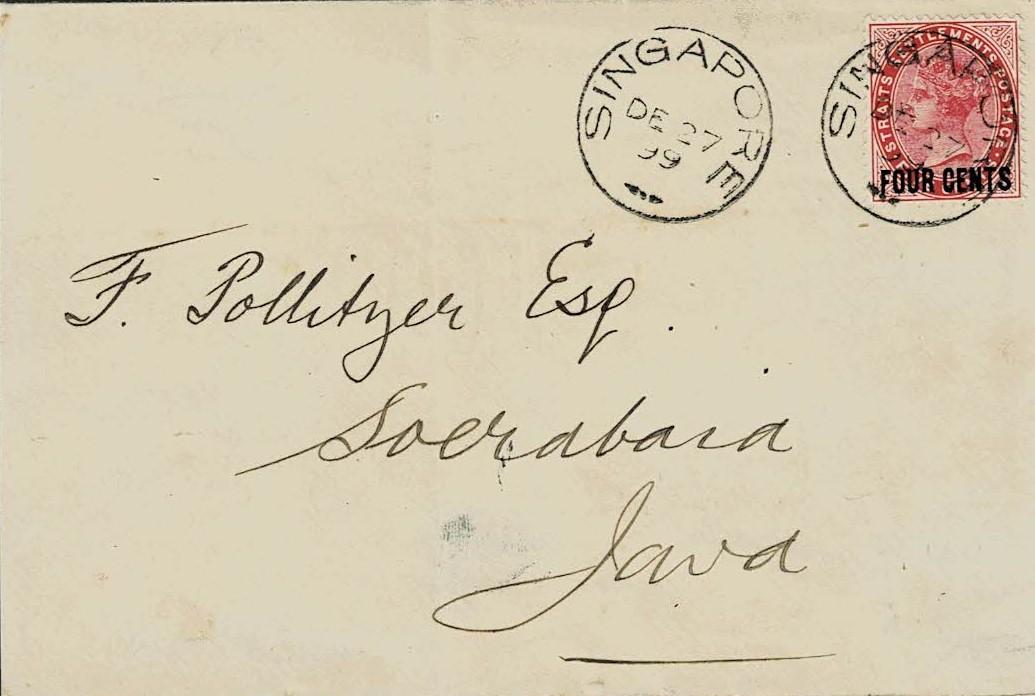 SINGAPORE
DE 27
99
SINGAPORE
27
STRAITS SETTLEMENTS POSTAGE
FOUR CENTS
F. Pollitzer Esq.
Soerabaia
Java